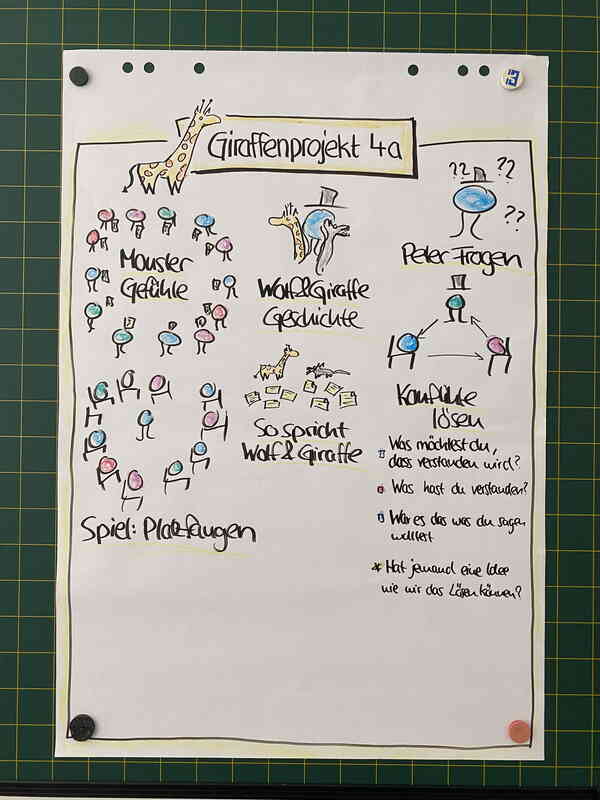 Giraffenprojekt 4a
Monster
Gefühle
Wolf&Giraffe
Geschichte
?? ?? ??
Peter Fragen
So spricht
Wolf & Giraffe
Konflikte
lösen
Was möchtest du,
dass verstanden wird?
Was hast du verstanden?
War es das was du sagen
wolltest
* Hat jemand eine Idee
wie wir das Lösen können?
Spiel: Platzfangen